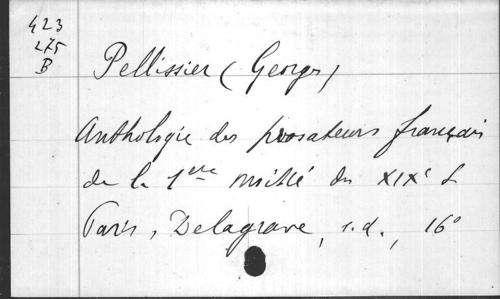 423
275
B
Pellissier (Georges)
Anthologie des prosateurs français
de la 1ère moitié du XIXe s
Paris, Delagrave, s.d., 16°